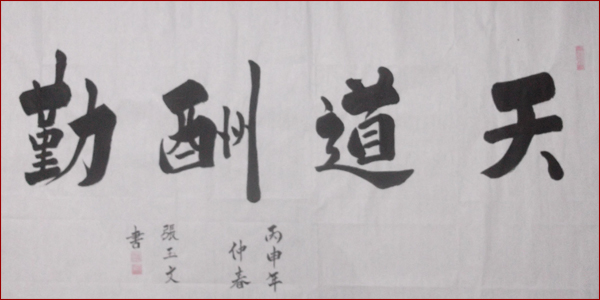 天道酬勤
丙申年
仲春
張玉文
書